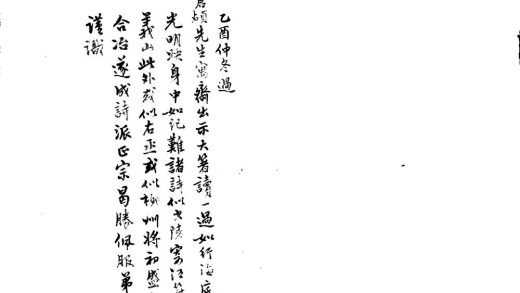 乙酉仲冬過
先生寓齋出示大箸讀一過如行海底
光明映身中如記難諸詩似少陵寄江
山此外或似右丞或似柳州將初盛
合冶遂成詩派正宗曷勝佩服弟
謹識